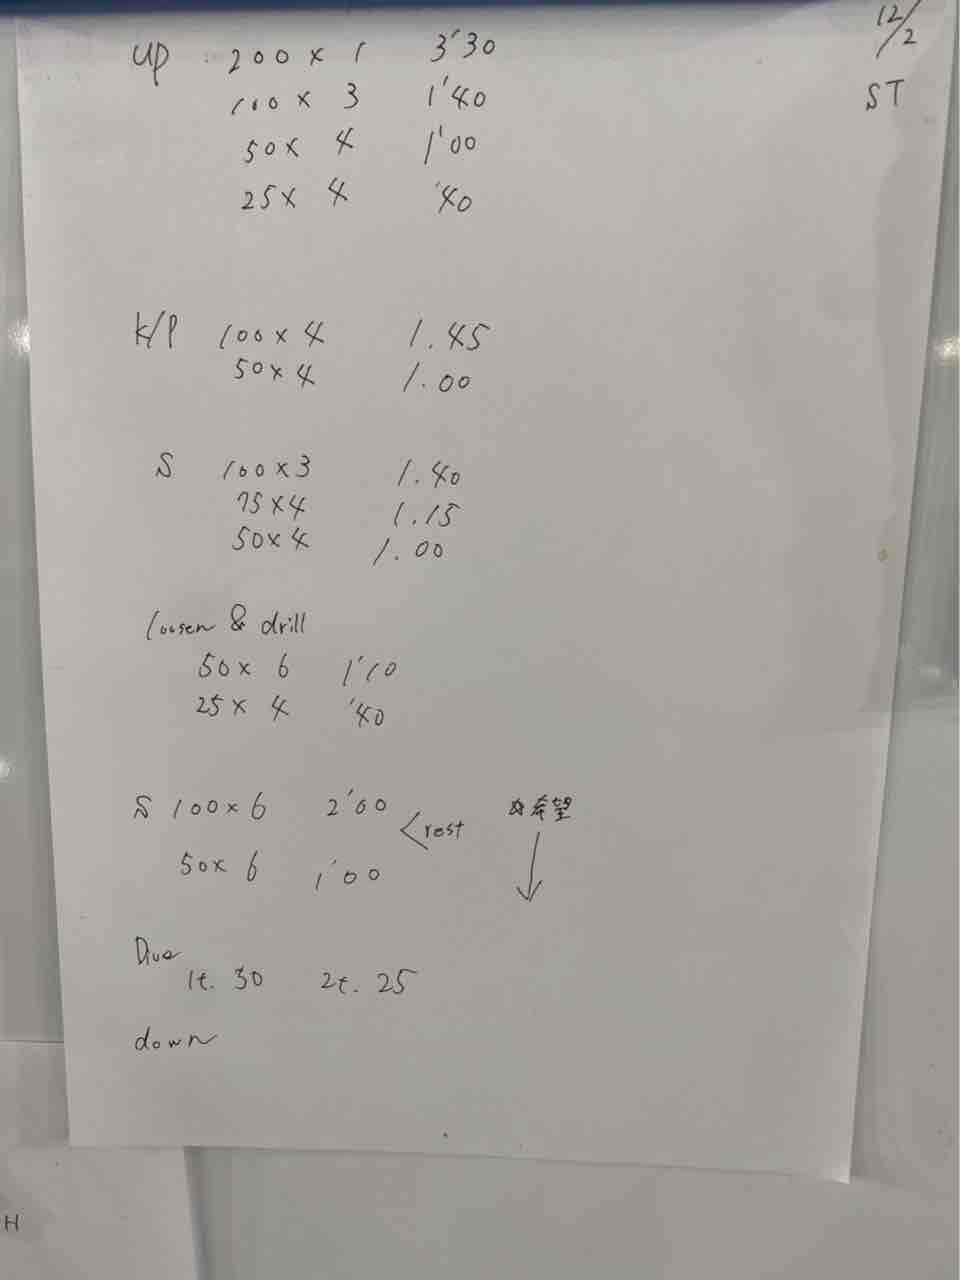 12/2
ST
up 200 x 1 3'30
100 x 3 1'40
50 x 4 1'00
25 x 4 '40
K/P 100 x 4 1.45
50 x 4 1.00
S 100 x 3 1.40
75 x 4 1.15
50 x 4 1.00
loosen & drill
50 x 6 1'10
25 x 4 '40
S 100 x 6 2'00
<rest ☆希望
50 x 6 1'00
Dive
1t. 30 2t. 25
down
H